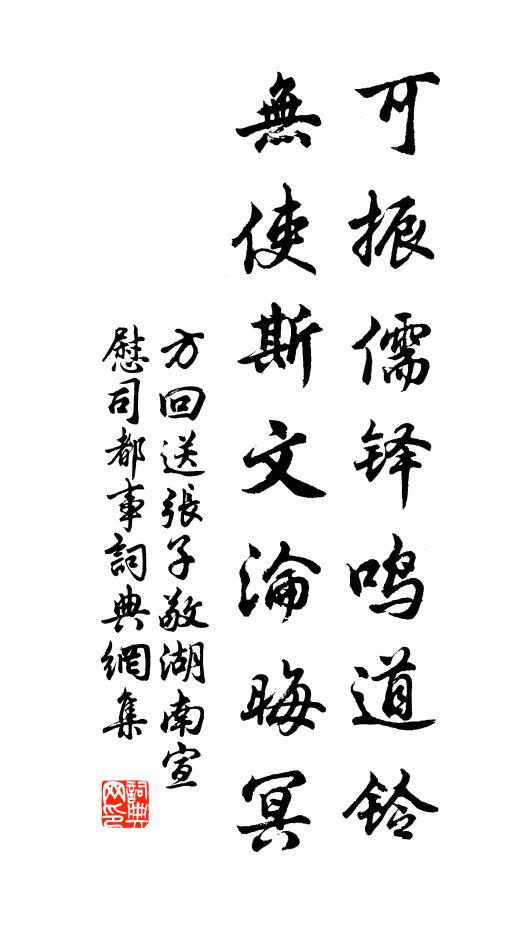 可振儒铎鸣道铃
無使斯文淪晦冥
方回送張子敬湖南宣
慰司都事詞典網集
詞典
网印